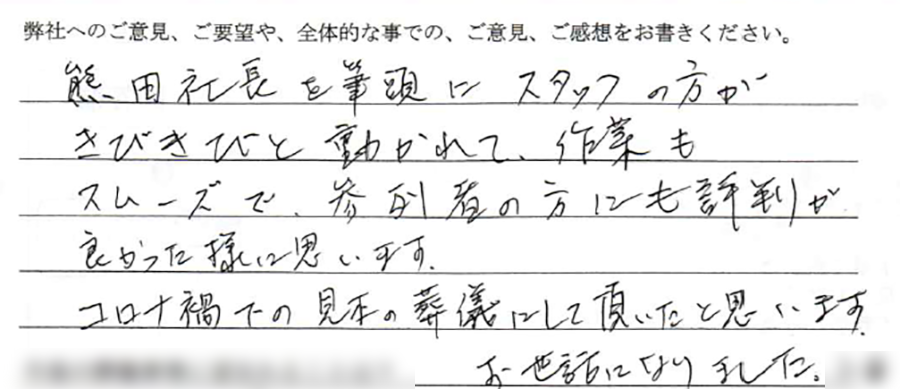 弊社へのご意見、ご要望や、全体的な事での、ご意見、ご感想をお書きください。
熊田社長を筆頭にスタッフの方が
きびきびと動かれて、作業も
スムーズで、参列者の方にも評判が
良かった様に思います。
コロナ禍での見本の葬儀にして頂いたと思います。
お世話になりました。